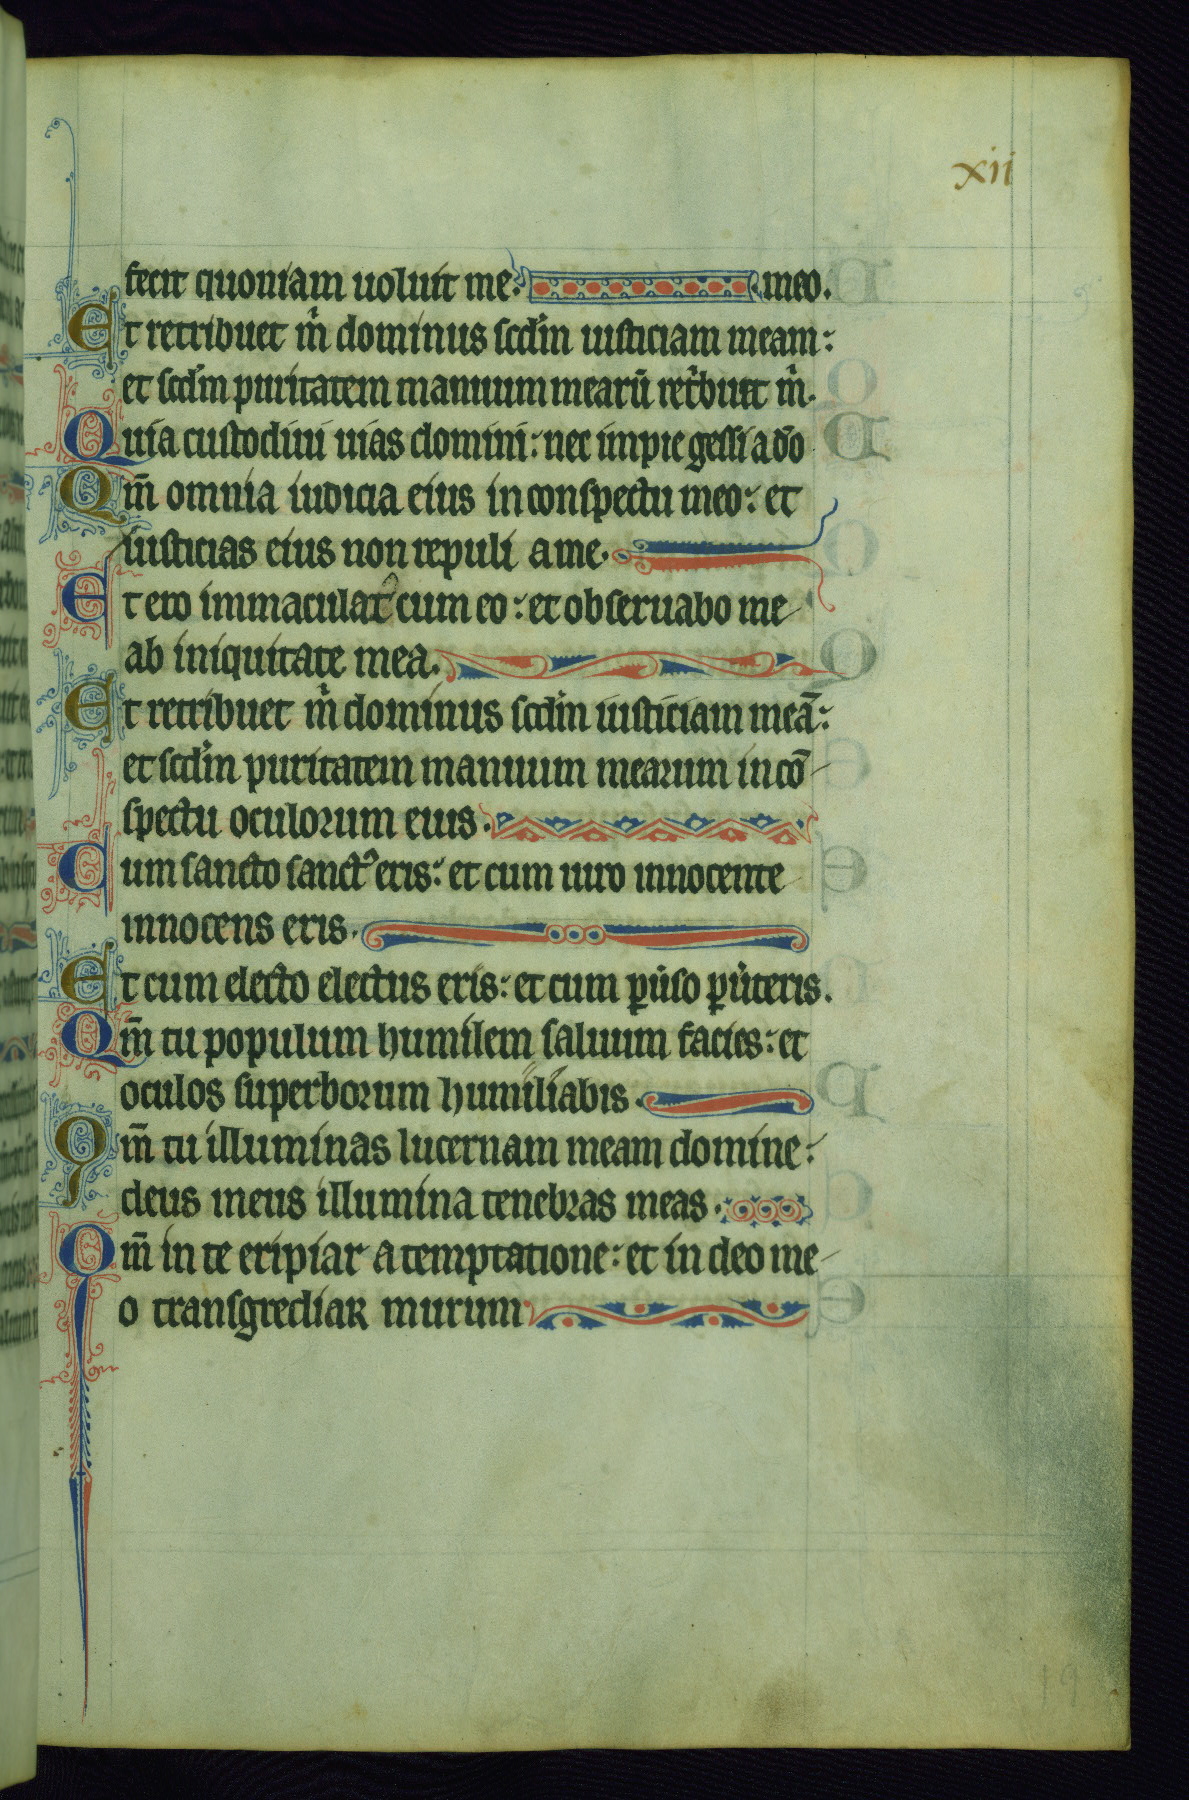 xii
fecit quoniam uoluit me. meo.
Et retribuet m̃ dominus scd̃m iusticiam meam:
et scd̃m puritatem manuum mearũ ret̃buet m̃.
Quia custodiui uias domini: nec impie gessi a dõ
Qm̃ omnia iudicia eius in conspectu meo: et
iusticias eius non repuli a me.
Et ero immaculatꝰ cum eo: et obseruabo me
ab iniquitate mea.
Et retribuet m̃ dominus scd̃m iusticiam meã:
et scd̃m puritatem manuum mearum in cõ-
spectu oculorum eius.
Cum sancto sanctꝰ eris: et cum uiro innocente
innocens eris.
Et cum electo electus eris: et cum ꝑũso ꝑũteris.
Qm̃ tu populum humilem saluum facies: et
oculos superborum humiliabis.
Qm̃ tu illuminas lucernam meam domine:
deus meus illumina tenebras meas.
Qm̃ in te eripiar a temptatione: et in deo me-
o transgrediar murum
19